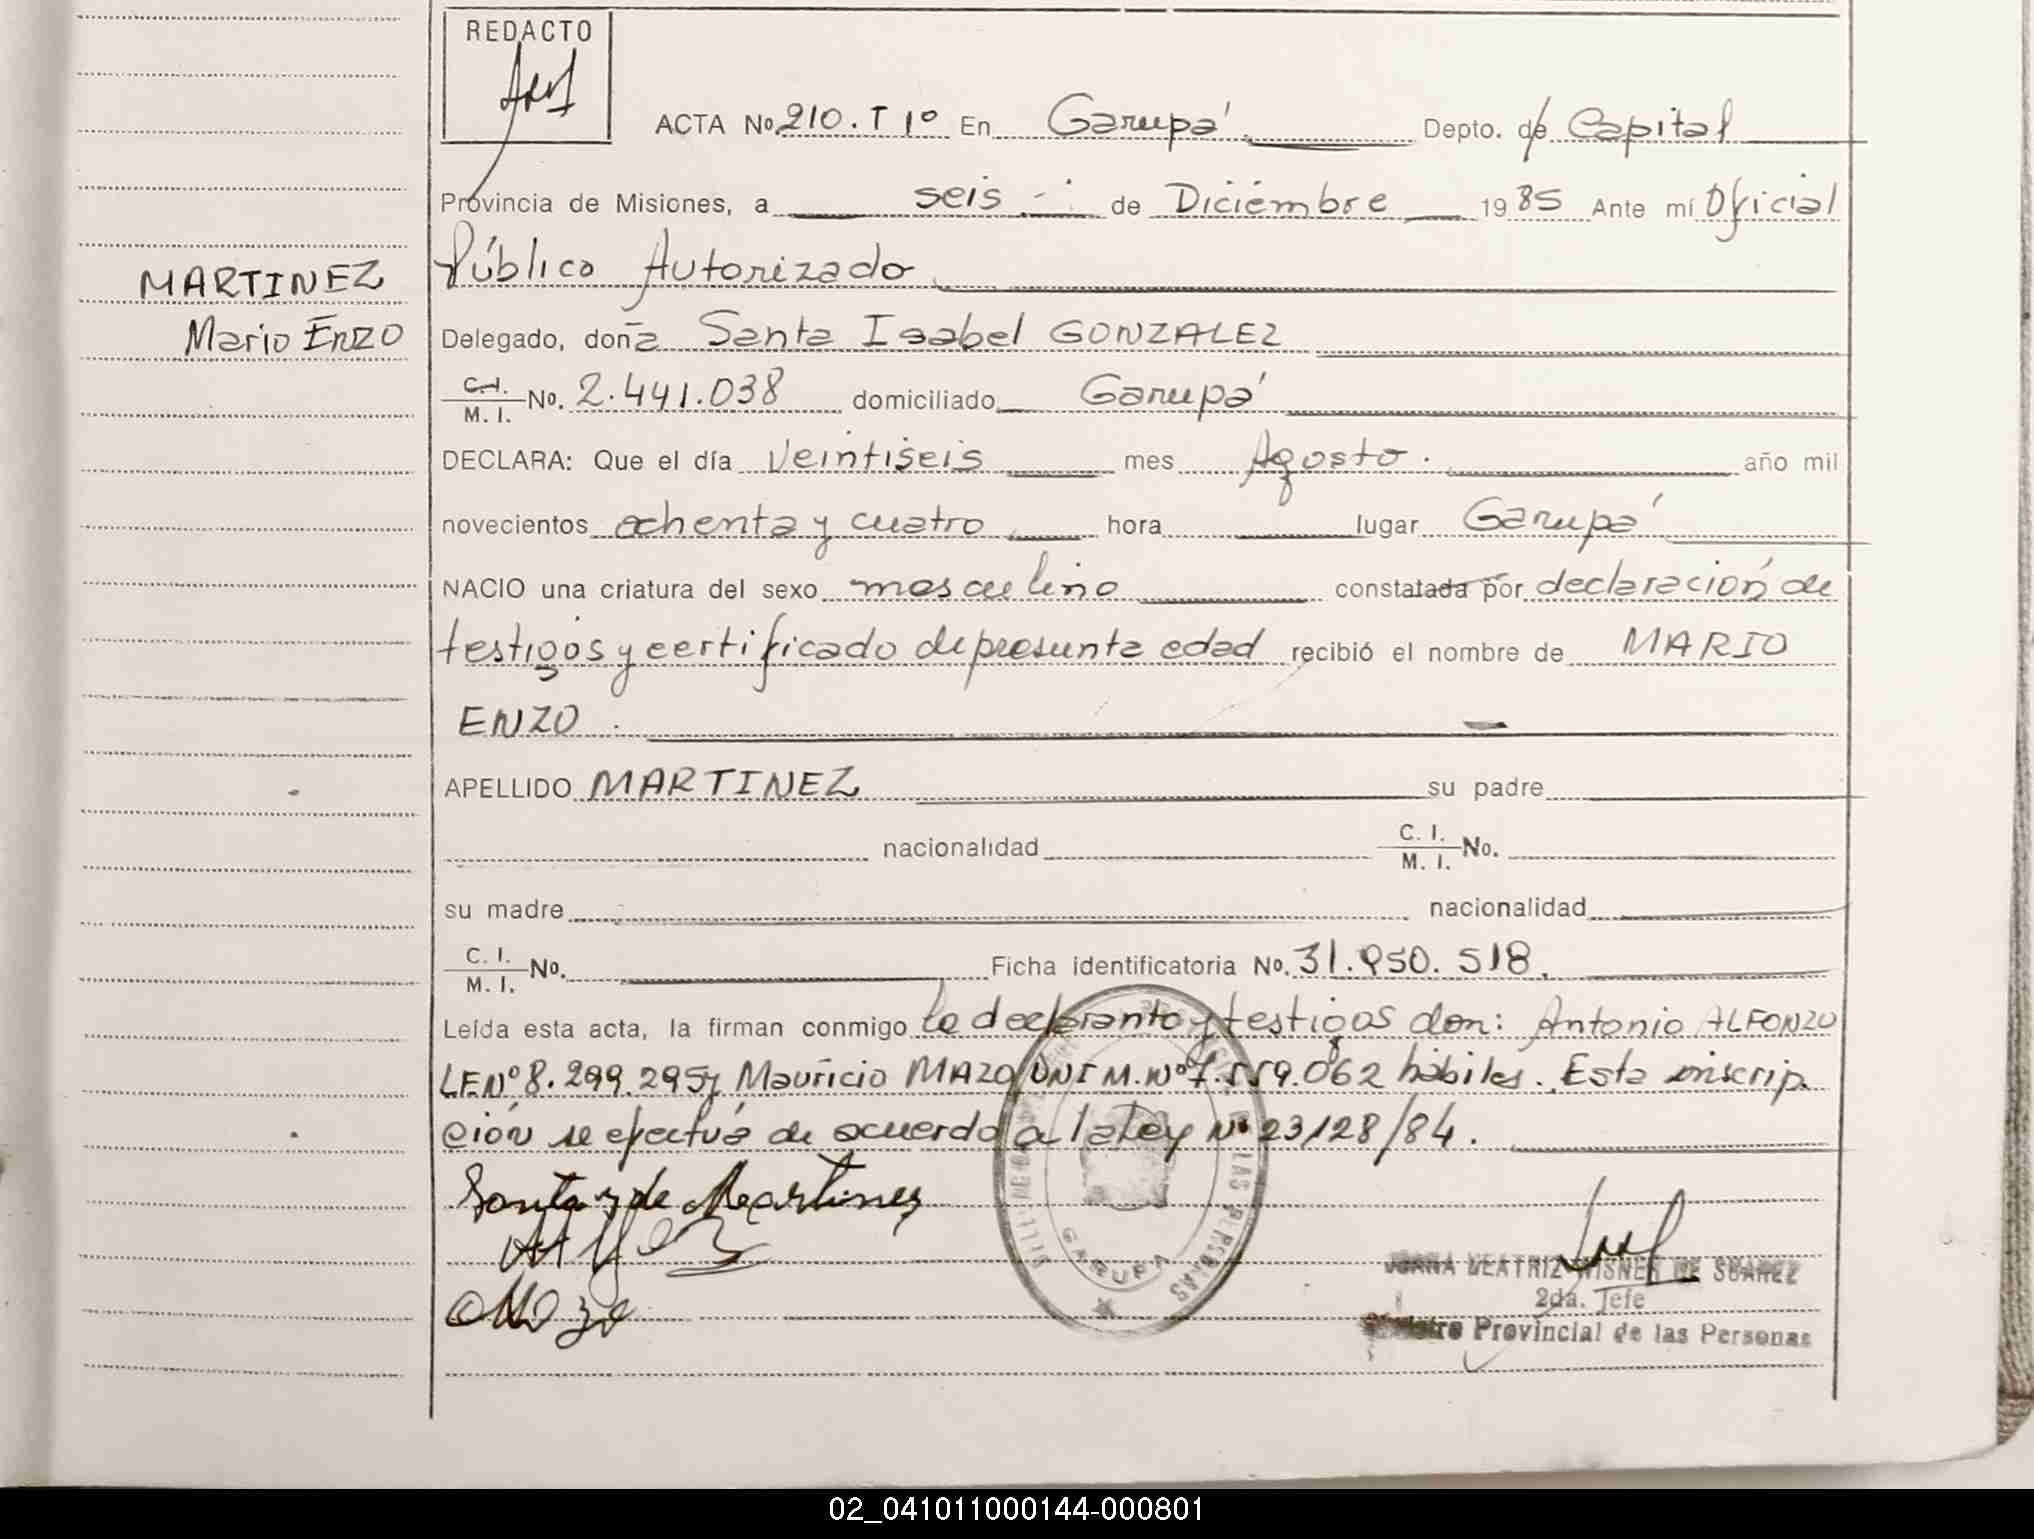 REDACTO
ACTA No. 210. T 1º En Garupá Depto. de Capital
Provincia de Misiones, a seis de Diciembre 1985 Ante mí Oficial
Público Autorizado
MARTINEZ
Mario Enzo
Delegado, doña Santa Isabel GONZALEZ
C. I. / M. I. No. 2.441.038 domiciliado Garupá
DECLARA: Que el día veintiseis mes Agosto. año mil
novecientos ochenta y cuatro hora lugar Garupá
NACIO una criatura del sexo masculino constatada por declaración de
testigos y certificado de presunta edad recibió el nombre de MARIO
ENZO
APELLIDO MARTINEZ su padre
nacionalidad C. I. / M. I. No.
su madre nacionalidad
C. I. / M. I. No. Ficha identificatoria No. 31.950.518.
Leída esta acta, la firman conmigo la declarante y testigos don: Antonio ALFONZO
LE Nº 8.299.295 y Mauricio MAZO DNI M. Nº 7.559.062 hábiles. Esta inscrip
ción se efectúa de acuerdo a la Ley Nº 23128/84.
Santa de Martinez
GARUPA
LAS PERSONAS
JUANA BEATRIZ WISNER DE SUAREZ
2da. Jefe
Registro Provincial de las Personas
02_041011000144-000801